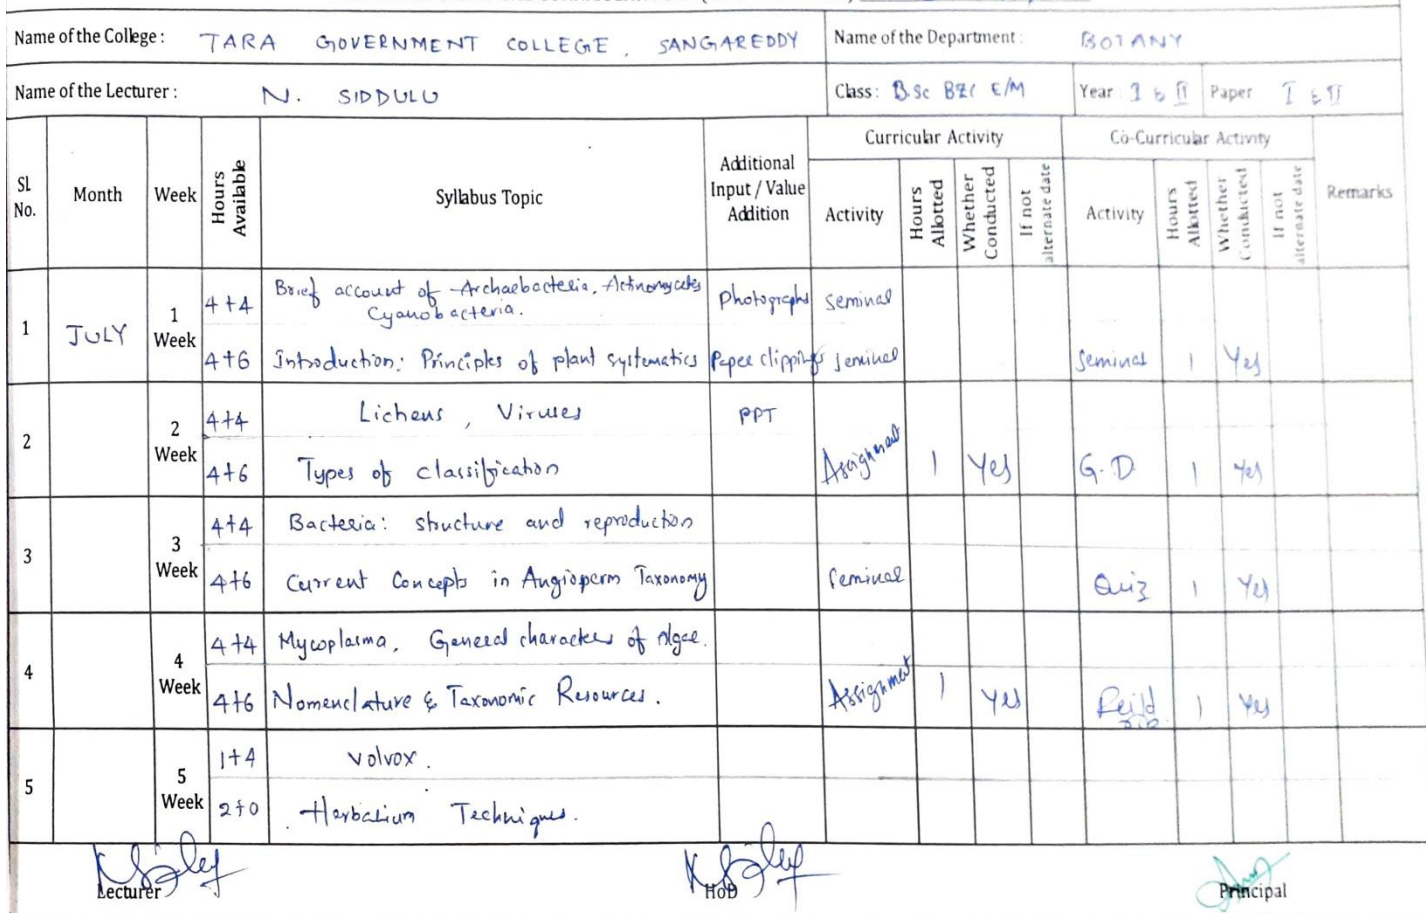 Name of the College : TARA GOVERNMENT COLLEGE, SANGAREDDY Name of the Department : BOTANY
Name of the Lecturer : N. SIDDULU Class : B.Sc BZC E/M Year I & II Paper I & II
Sl. No. Month Week Hours Available Syllabus Topic Additional Input / Value Addition Curricular Activity Co-Curricular Activity Remarks
Activity Hours Allotted Whether Conducted If not alternate date Activity Hours Allotted Whether Conducted If not alternate date
1 JULY 1 Week 4+4 Brief account of Archaebacteria, Actinomycetes Cyanobacteria. Photographs Seminar
4+6 Introduction: Principles of plant systematics Paper clippings Seminar Seminar 1 Yes
2 2 Week 4+4 Lichens, Viruses PPT
4+6 Types of classification Assignment 1 Yes G.D 1 Yes
3 3 Week 4+4 Bacteria: structure and reproduction
4+6 Current Concepts in Angioperm Taxonomy Seminar Quiz 1 Yes
4 4 Week 4+4 Mycoplasma, General characters of Algae.
4+6 Nomenclature & Taxonomic Resources. Assignment 1 Yes Feild 1 Yes
5 5 Week 1+4 Volvox.
2+0 Herbarium Techniques.
Lecturer HoD Principal